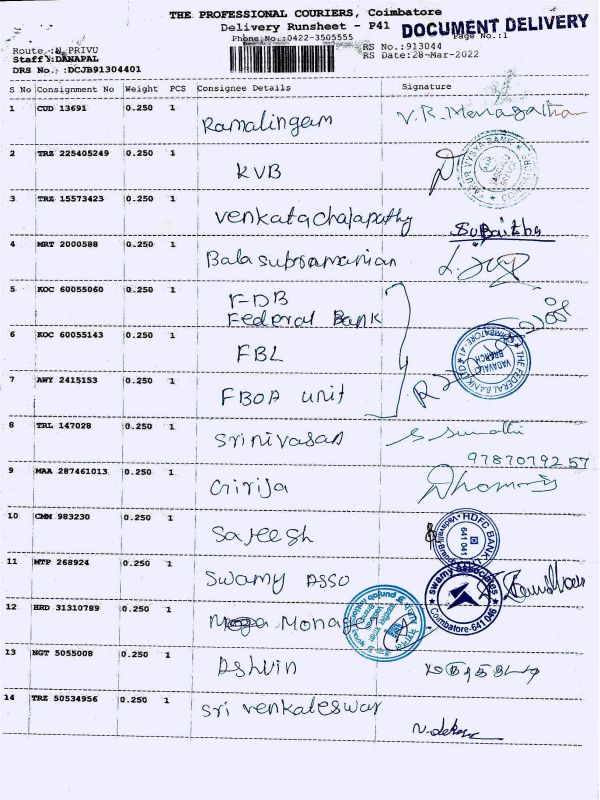 THE PROFESSIONAL COURIERS, Coimbatore
Delivery Runsheet - P41
DOCUMENT DELIVERY
Phone No.:0422-3505555
Page No.:1
Route :N PRIVU
RS No.:913044
Staff :DANAPAL
RS Date:28-Mar-2022
DRS No. :DCJB91304401
S No Consignment No Weight PCS Consignee Details Signature
1 CUD 13691 0.250 1 Ramalingam V.R.
2 TRZ 225405249 0.250 1 KVB
3 TRZ 15573423 0.250 1 Venkatachalapathy
4 MRT 2000588 0.250 1 Balasubramanian
5 KOC 60055060 0.250 1 FDB
Federal Bank
6 KOC 60055143 0.250 1 FBL
THE FEDERAL BANK LTD COIMBATORE-41
VADAVALLI
BRANCH
7 AWY 2415153 0.250 1 FBOA unit
8 TRL 147028 0.250 1 Srinivasan S Sumathi
9787079257
9 MAA 287461013 0.250 1 Girija
10 CMM 983230 0.250 1 Sajeesh
HDFC BANK
641041
11 MTP 268924 0.250 1 Swamy ASSO
Swamy Associates
Coimbatore-641 046
12 HRD 31310789 0.250 1 Manager
13 NGT 5055008 0.250 1 Ashvin
14 TRZ 50534956 0.250 1 Sri Venkateswar